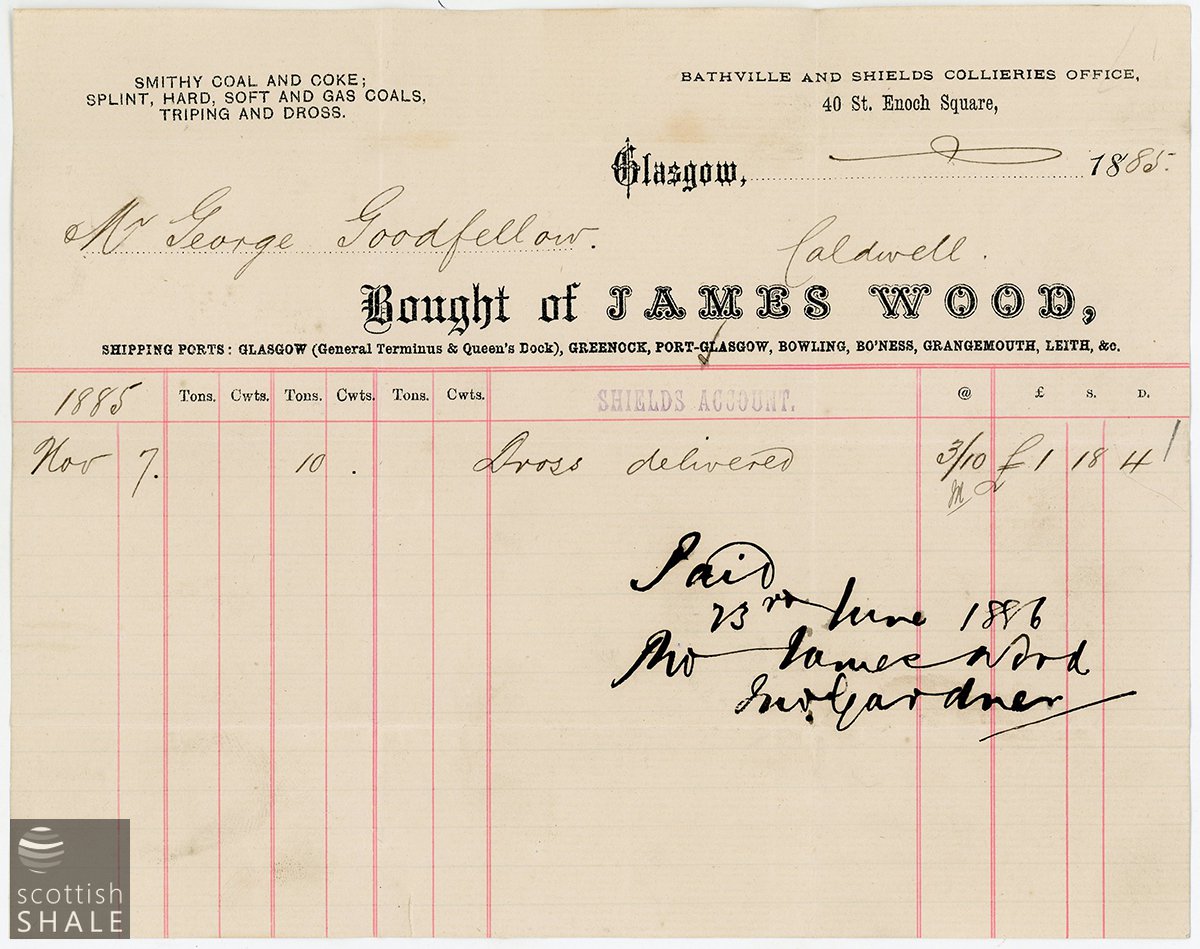 SMITHY COAL AND COKE;
SPLINT, HARD, SOFT AND GAS COALS,
TRIPING AND DROSS.
BATHVILLE AND SHIELDS COLLIERIES OFFICE,
40 St. Enoch Square,
Glasgow, 1885.
Mr George Goodfellow.
Caldwell.
Bought of JAMES WOOD,
SHIPPING PORTS: GLASGOW (General Terminus & Queen's Dock), GREENOCK, PORT-GLASGOW, BOWLING, BO'NESS, GRANGEMOUTH, LEITH, &c.
1885 Tons. Cwts. Tons. Cwts. Tons. Cwts. SHIELDS ACCOUNT. @ £ S. D.
Nov 7. 10 . Dross delivered 3/10 £1 18 4
Paid
23rd June 1886
James Wood
Gardner
scottish
SHALE